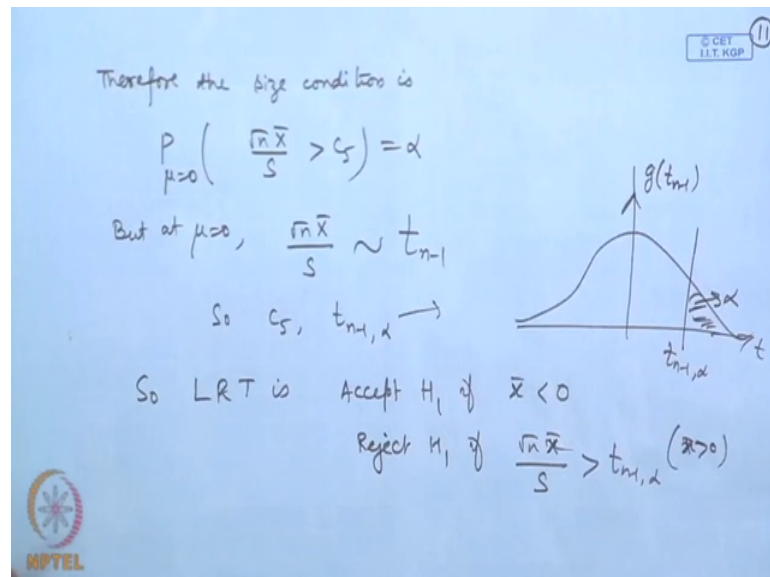 © CET
I.I.T. KGP
11
Therefore the size condition is
P μ=0 ( √n X̄ / S > c5 ) = α
But at μ=0, √n X̄ / S ~ t n-1
g(t n-1)
So c5, t n-1, α →
α
t
t n-1, α
So LRT is Accept H1 if x̄ < 0
Reject H1 if √n x̄ / S > t n-1, α (x̄>0)
NPTEL